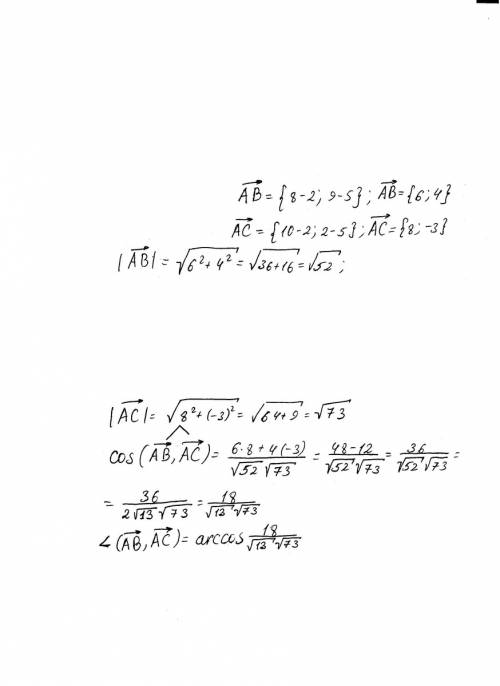 AB = {8-2; 9-5}; AB = {6; 4}
AC = {10-2; 2-5}; AC = {8; -3}
|AB| = √(6² + 4²) = √(36+16) = √52;
|AC| = √(8² + (-3)²) = √(64+9) = √73
cos(AB, AC) = (6·8 + 4(-3))/(√52 √73) = (48-12)/(√52 √73) = 36/(√52 √73) =
= 36/(2√13 √73) = 18/(√12 √73)
∠(AB, AC) = arccos 18/(√12 √73)